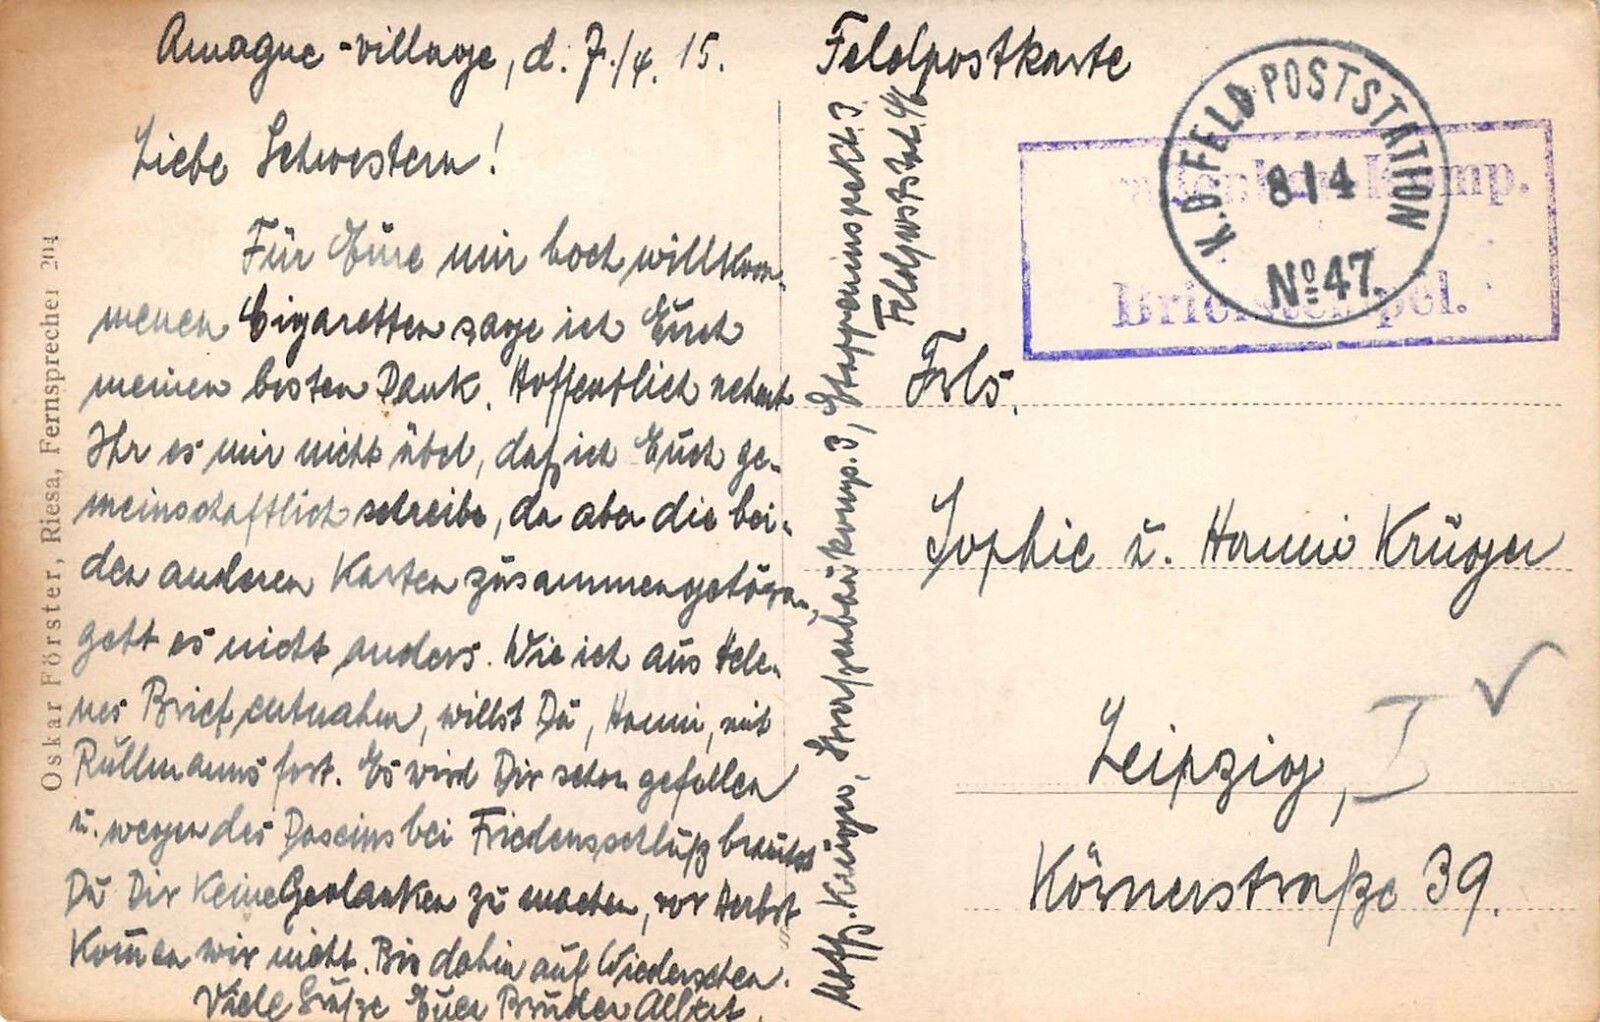 Amagne-village, d. 7./4. 15.
Liebe Schwestern!
Für Eure mir hoch willkom-
menen Cigaretten sage ich Euch
meinen besten Dank. Hoffentlich nehmt
Ihr es mir nicht übel, daß ich Euch ge-
meinschaftlich schreibe, da aber die bei-
den anderen Karten zusammengehören,
geht es nicht anders. Wie ich aus Hele-
nes Brief entnahm, willst Du, Hanni, mit
Rullmanns fort. Es wird Dir schon gefallen
u. wegen des Daseins bei Friedensschluß brauchst
Du Dir keine Gedanken zu machen, vor Herbst
kommen wir nicht. Bis dahin auf Wiedersehen.
Viele Grüße Euer Bruder Albert.
Feldpostkarte
Krüger, Straßenbaukomp. 3, Etappeninspekt. 3.
Feldpoststat.
K.D. FELD-POSTSTATION
8 4
No 47.
Briefstempel.
Frls.
Sophie u. Hanni Krüger
Leipzig, I
Körnerstraße 39.
Oskar Förster, Riesa, Fernsprecher 204